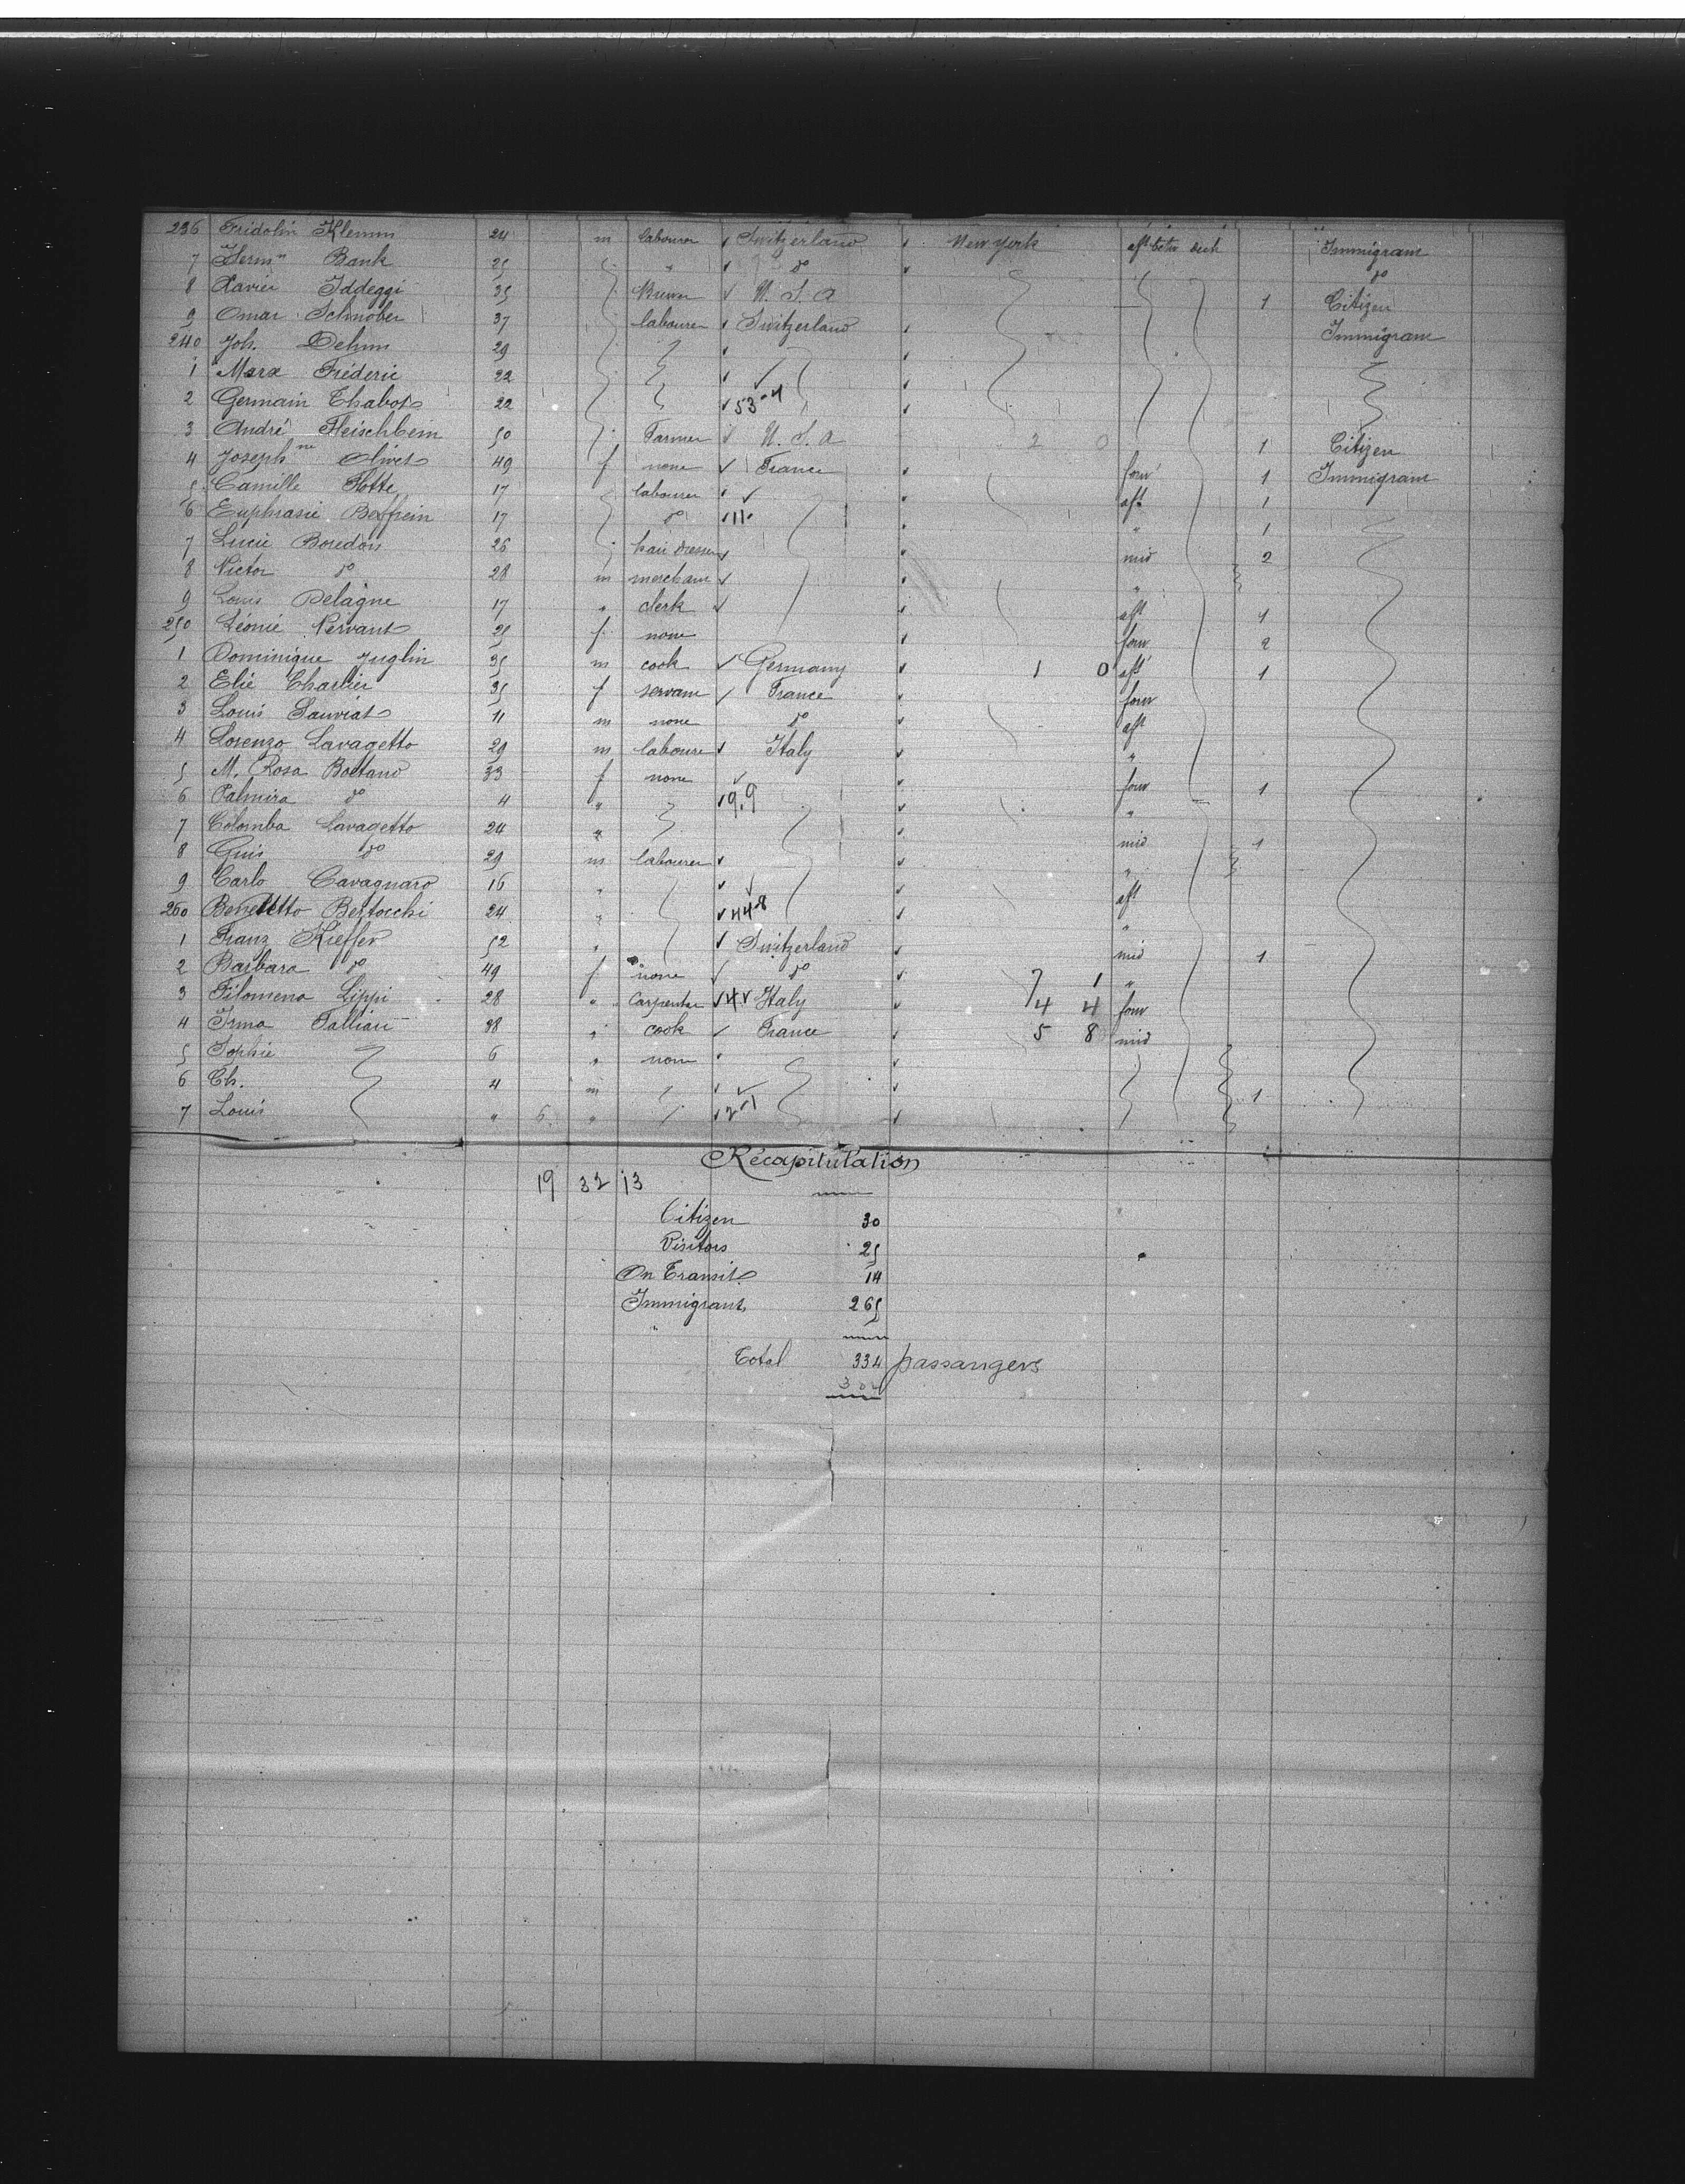 236 Fridolin Klemm 24 m labourer ✓ Switzerland ✓ New York aft betw deck Immigrant
7 Hermⁿ Bank 25 " ✓ dº ✓ dº
8 Xavier Iddeggi 35 Brewer ✓ U. S. A 1 Citizen
9 Omar Schnober 37 labourer ✓ Switzerland ✓ Immigrant
240 Joh. Dehm 29 ✓ ✓
1 Marx Fréderic 22 ✓ ✓ ✓
2 Germain Chabot 22 ✓ 53-4 ✓
3 André Fleischbem 50 Farmer ✓ U. S. A 2 0 1 Citizen
4 Joseph^ne Olivet 49 f none ✓ France ✓ forw 1 Immigrant
5 Camille Flotte 17 labourer ✓ ✓ ✓ aft 1
6 Euphrasie 17 dº ✓ 11 ✓ " 1
7 Lucie Boredon 26 hair dresser ✓ ✓ mid 2
8 Victor dº 28 m merchant ✓ ✓ "
9 Louis Delagne 17 " clerk ✓ ✓ aft 1
250 Léonie Pervant 25 f none ✓ forw 2
1 Dominique Juglin 35 m cook ✓ Germany ✓ 1 0 aft 1
2 Elie Charlier 35 f servant ✓ France ✓ forw
3 Louis Sauviat 11 m none dº ✓ aft
4 Lorenzo Lavagetto 29 m labourer ✓ Italy ✓ "
5 M. Rosa Boetano 33 f none ✓ ✓ forw 1
6 Palmira dº 4 " ✓ 9.9 ✓ "
7 Colomba Lavagetto 24 " ✓ mid 1
8 Guis dº 29 m labourer ✓ ✓ "
9 Carlo Cavagnaro 16 " ✓ ✓ ✓ aft
260 Benedetto Bertocchi 24 " ✓ 44-8 ✓ "
1 Franz Kieffer 52 " ✓ Switzerland ✓ mid 1
2 Barbara dº 49 f none ✓ dº ✓ 7 1 "
3 Filomena Lippi 28 " Carpenter ✓ 4 ✓ Italy ✓ 4 4 forw
4 Irma Tallian 38 " cook ✓ France ✓ 5 8 mid
5 Sophie 6 " none ✓ ✓
6 Ch. 4 m ✓ ✓ ✓ 1
7 Louis " 6 " ✓ 2-1 ✓
Récapitulation
19 32 13
Citizen 30
Visitors 25
On Transit 14
Immigrants 265
Total 334 passangers